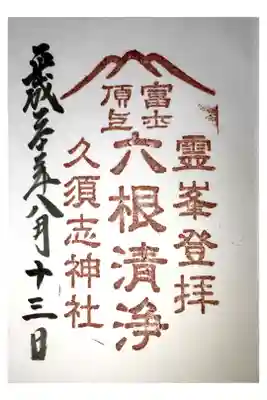 霊峯登拝
富士
頂上
六根清浄
久須志神社
平成 年八月十三日